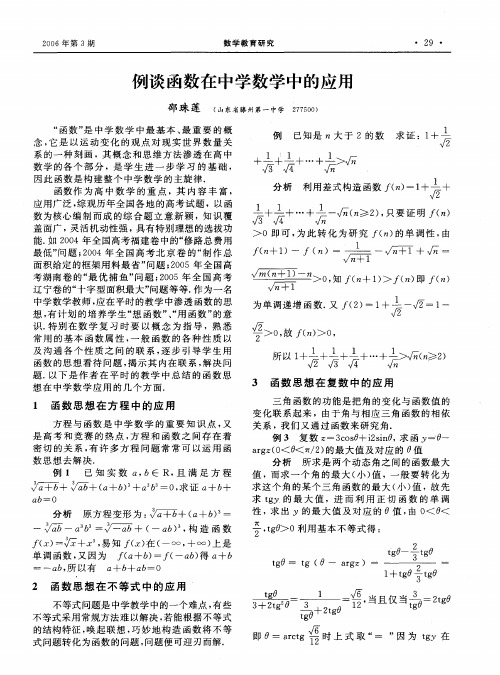 2006 年第 3 期
数学教育研究
· 29 ·
例谈函数在中学数学中的应用
邵珠莲 (山东省滕州第一中学 277500)
“函数”是中学数学中最基本、最重要的概
念,它是以运动变化的观点对现实世界数量关
系的一种刻画,其概念和思维方法渗透在高中
数学的各个部分,是学生进一步学习的基础,
因此函数是构建整个中学数学的主旋律.
函数作为高中数学的重点,其内容丰富,
应用广泛,综观历年全国各地的高考试题,以函
数为核心编制而成的综合题立意新颖,知识覆
盖面广,灵活机动性强,具有特别理想的选拔功
能.如 2004 年全国高考福建卷中的“修路总费用
最低”问题;2004 年全国高考北京卷的“制作总
面积给定的框架用料最省”问题;2005 年全国高
考湖南卷的“最优捕鱼”问题;2005 年全国高考
辽宁卷的“十字型面积最大”问题等等.作为一名
中学数学教师,应在平时的教学中渗透函数的思
想,有计划的培养学生“想函数”、“用函数”的意
识.特别在数学复习时要以概念为指导,熟悉
常用的基本函数属性,一般函数的各种性质以
及沟通各个性质之间的联系,逐步引导学生用
函数的思想看待问题,揭示其内在联系,解决问
题.以下是作者在平时的教学中总结的函数思
想在中学数学应用的几个方面.
1 函数思想在方程中的应用
方程与函数是中学数学的重要知识点,又
是高考和竞赛的热点,方程和函数之间存在着
密切的关系,有许多方程问题常常可以运用函
数思想去解决.
例 1 已知实数 a,b∈R,且满足方程
∛(a+b)+∛(ab)+(a+b)³+a³b³=0,求证 a+b+
ab=0
分析 原方程变形为:∛(a+b)+(a+b)³=
-∛(ab)-a³b³=∛(-ab)+(-ab)³,构造函数
f(x)=∛x+x³,易知 f(x)在(-∞,+∞)上是
单调函数,又因为 f(a+b)=f(-ab)得 a+b
=-ab,所以有 a+b+ab=0
2 函数思想在不等式中的应用
不等式问题是中学教学中的一个难点,有些
不等式采用常规方法难以解决,若能根据不等式
的结构特征,唤起联想,巧妙地构造函数将不等
式问题转化为函数的问题,问题便可迎刃而解.
例 已知是 n 大于 2 的数 求证:1+1/√2
+1/√3+1/√4+…+1/√n>√n
分析 利用差式构造函数 f(n)=1+1/√2+
1/√3+1/√4+…+1/√n-√n(n≥2),只要证明 f(n)
>0 即可,为此转化为研究 f(n)的单调性,由
f(n+1)-f(n)=1/√(n+1)-√(n+1)+√n=
(√(n(n+1))-n)/√(n+1)>0,知 f(n+1)>f(n)即 f(n)
为单调递增函数.又 f(2)=1+1/√2-√2=1-
√2/2>0,故 f(n)>0,
所以 1+1/√2+1/√3+1/√4+…+1/√n>√n(n≥2)
3 函数思想在复数中的应用
三角函数的功能是把角的变化与函数值的
变化联系起来,由于角与相应三角函数的相依
关系,我们又通过函数来研究角.
例 3 复数 z=3cosθ+i2sinθ,求函 y=θ-
argz(0<θ<π/2)的最大值及对应的 θ 值
分析 所求是两个动态角之间的函数最大
值,而求一个角的最大(小)值,一般要转化为
求这个角的某个三角函数的最大(小)值,故先
求 tgy 的最大值,进而利用正切函数的单调
性,求出 y 的最大值及对应的 θ 值,由 0<θ<
π/2,tgθ>0 利用基本不等式得:
tgθ=tg(θ-argz)=(tgθ-2/3tgθ)/(1+tgθ2/3tgθ)=
tgθ/(3+2tg²θ)=1/(3/tgθ+2tgθ)=√6/12,当且仅当3/tgθ=2tgθ
即 θ=arctg √6/12 时上式取“=”因为 tgy 在